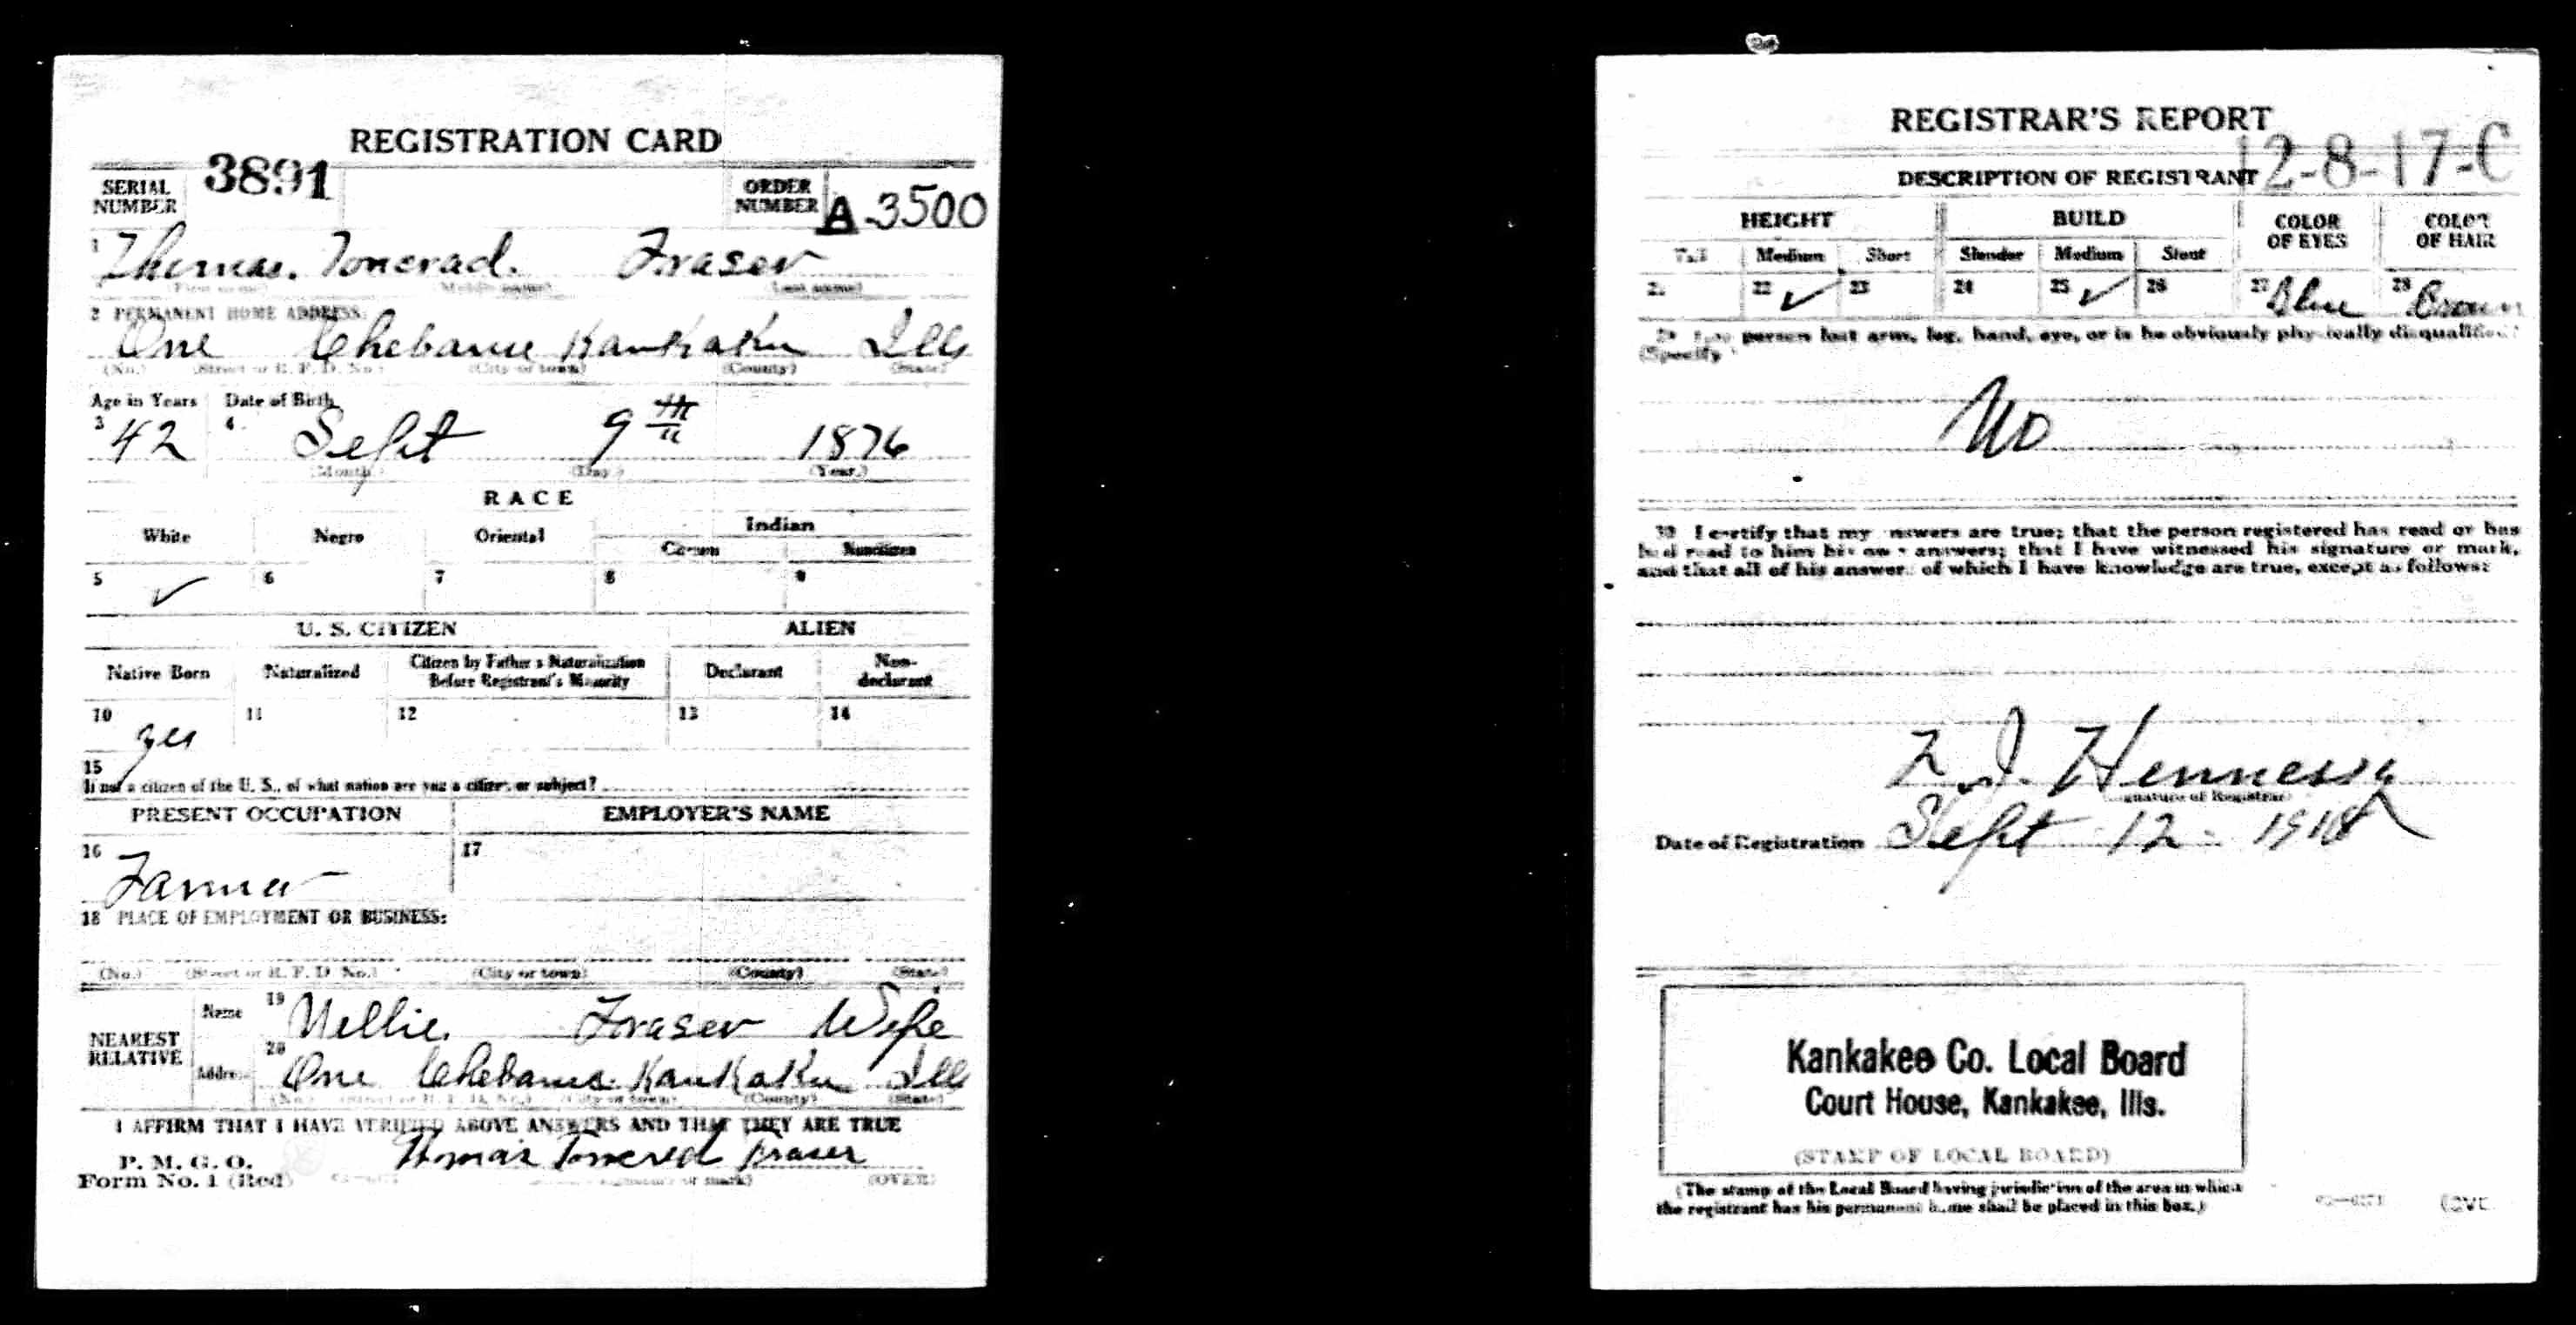 REGISTRATION CARD
SERIAL NUMBER 3891 ORDER NUMBER A 3500
1 Thomas. Toncrad. Fraser
(First name) (Middle name) (Last name)
2 PERMANENT HOME ADDRESS:
One Chebanse Kankakee Ills
(No.) (Street or R. F. D. No.) (City or town) (County) (State)
Age in Years Date of Birth
3 42 4 Sept 9th 1876
(Month) (Day) (Year)
RACE
White Negro Oriental Indian
Citizen Noncitizen
5 ✓ 6 7 8 9
U. S. CITIZEN ALIEN
Native Born Naturalized Citizen by Father's Naturalization Before Registrant's Majority Declarant Non-declarant
10 yes 11 12 13 14
15
If not a citizen of the U. S., of what nation are you a citizen or subject?
PRESENT OCCUPATION EMPLOYER'S NAME
16 Farmer 17
18 PLACE OF EMPLOYMENT OR BUSINESS:
(No.) (Street or R. F. D. No.) (City or town) (County) (State)
NEAREST RELATIVE
Name 19 Nellie. Fraser Wife
Address 20 One Chebanse Kankakee Ills
(No.) (Street or R. F. D. No.) (City or town) (County) (State)
I AFFIRM THAT I HAVE VERIFIED ABOVE ANSWERS AND THAT THEY ARE TRUE
P. M. G. O.
Form No. 1 (Red) Thomas Toncred Fraser
(OVER)
REGISTRAR'S REPORT
12-8-17-C
DESCRIPTION OF REGISTRANT
HEIGHT BUILD COLOR OF EYES COLOR OF HAIR
Tall Medium Short Slender Medium Stout
21 22 ✓ 23 24 25 ✓ 26 27 Blue 28 Brown
29 Has person lost arm, leg, hand, eye, or is he obviously physically disqualified?
(Specify)
No
30 I certify that my answers are true; that the person registered has read or has
had read to him his own answers; that I have witnessed his signature or mark,
and that all of his answers of which I have knowledge are true, except as follows:
F. J. Hennessy
(Signature of Registrar)
Date of Registration Sept 12 - 1918
Kankakee Co. Local Board
Court House, Kankakee, Ills.
(STAMP OF LOCAL BOARD)
(The stamp of the Local Board having jurisdiction of the area in which
the registrant has his permanent home shall be placed in this box.)
(OVE